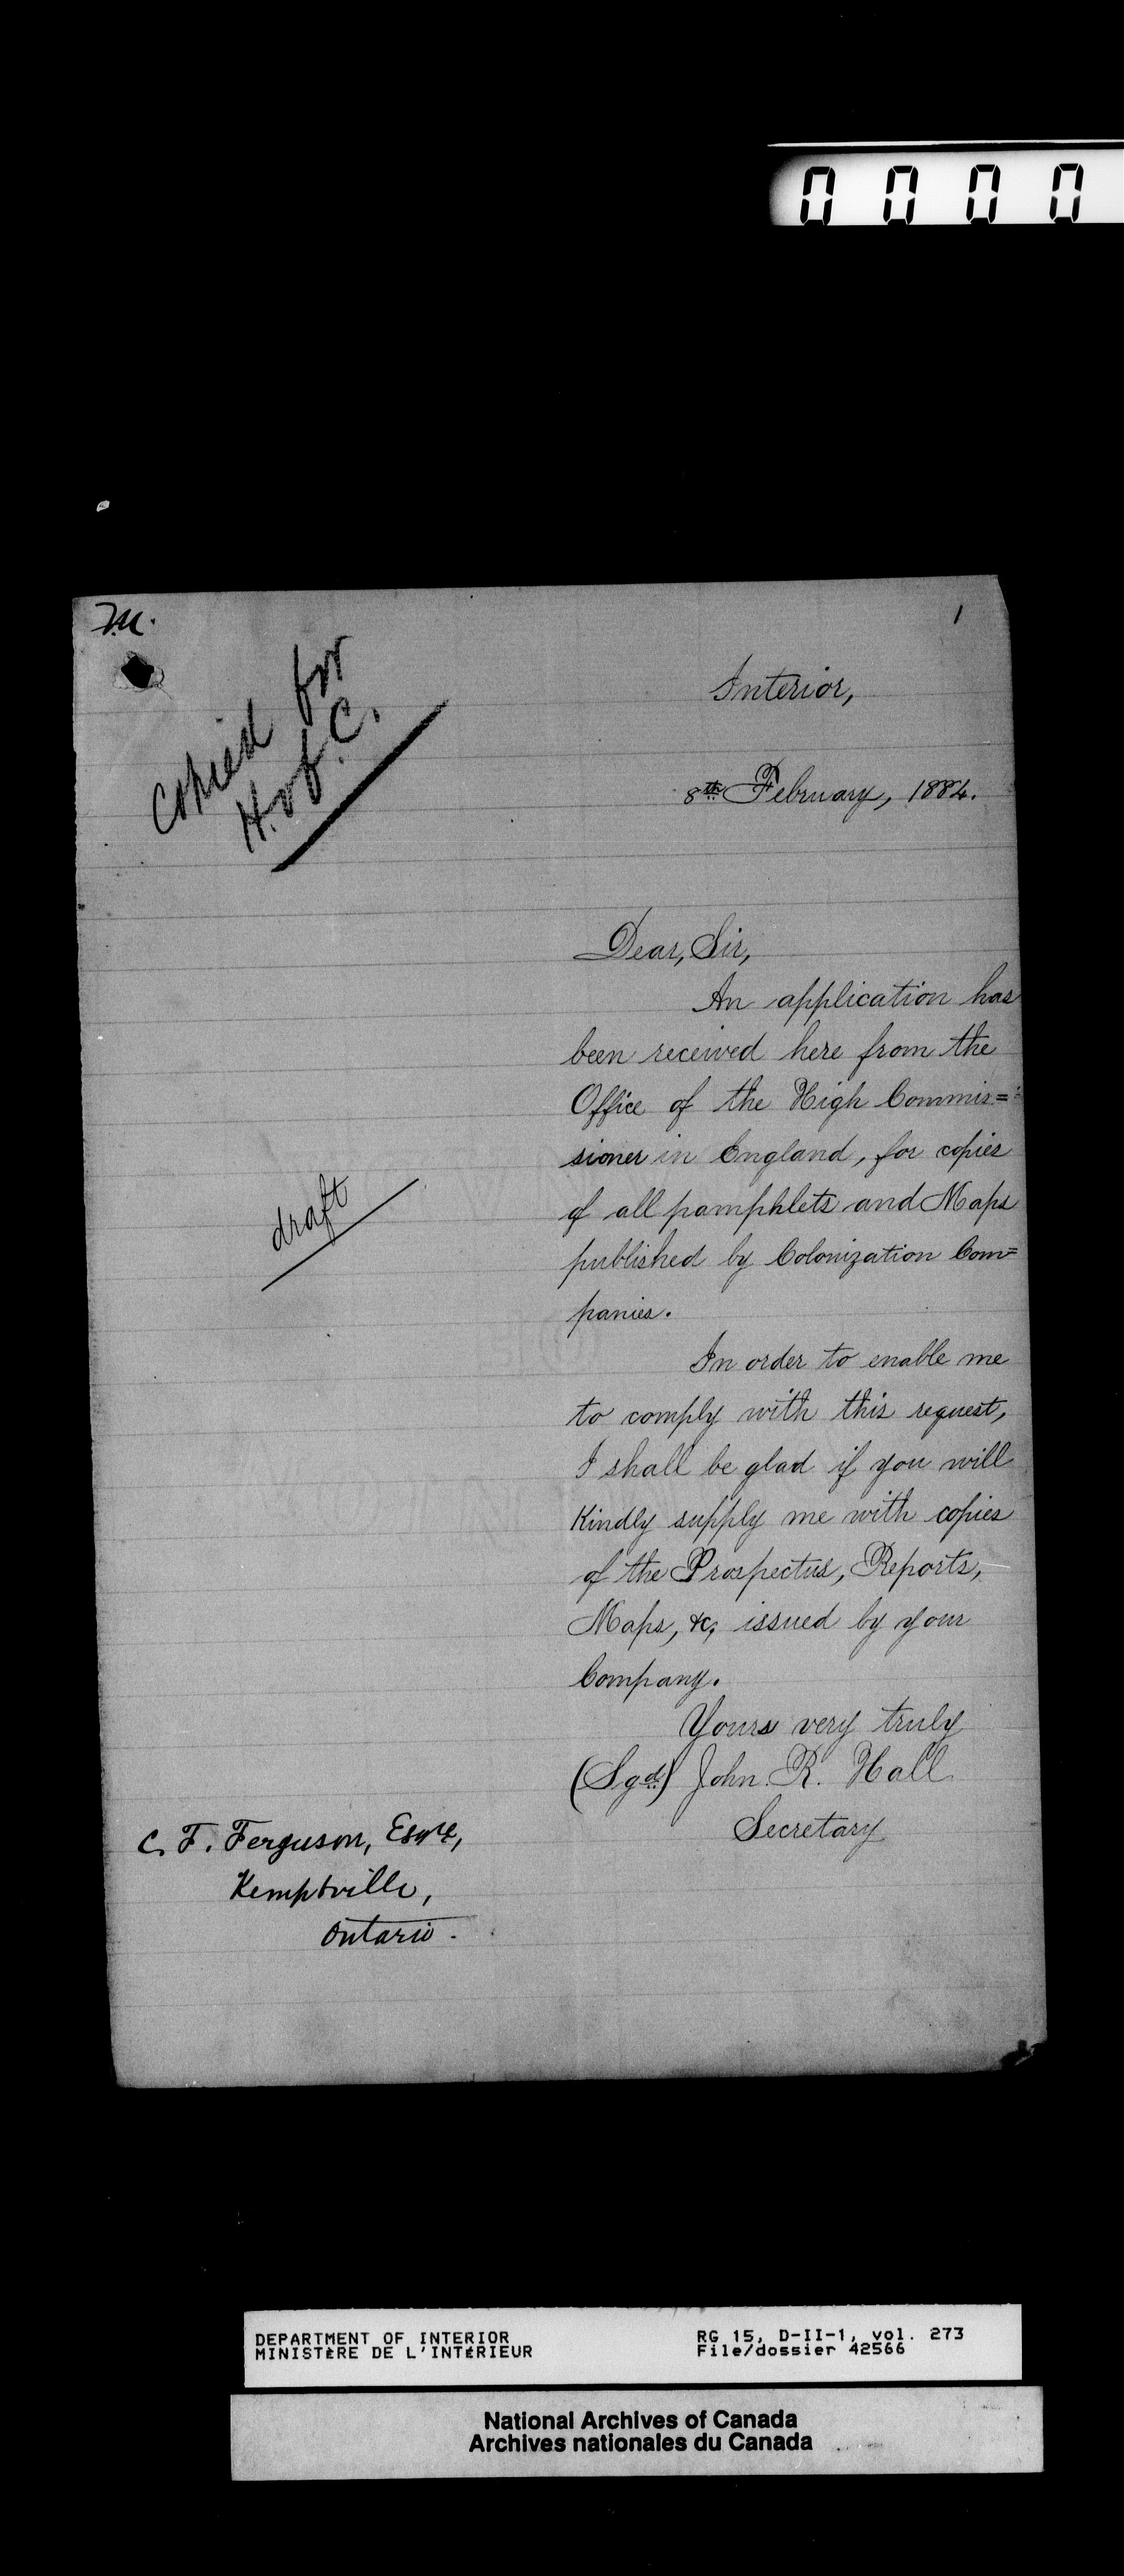 0000
T.M.
1
Copied for
H. of C.
Interior,
8th February, 1884.
Dear, Sir,
An application has
been received here from the
Office of the High Commis=
sioner in England, for copies
of all pamphlets and Maps
published by Colonization Com=
panies.
draft
In order to enable me
to comply with this request,
I shall be glad if you will
Kindly supply me with copies
of the Prospectus, Reports,
Maps, &c, issued by your
Company.
Yours very truly
(Sgd.) John. R. Hall
Secretary
C. F. Ferguson, Esqre,
Kemptville,
Ontario.
DEPARTMENT OF INTERIOR
MINISTÈRE DE L'INTÉRIEUR
RG 15, D-II-1, vol. 273
File/dossier 42566
National Archives of Canada
Archives nationales du Canada